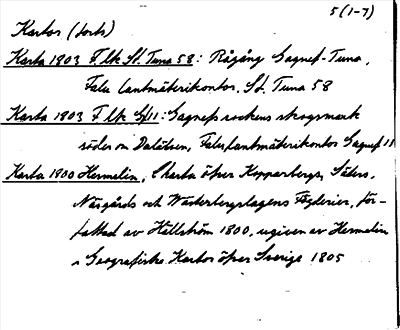 5 (1-7)
Kartor (forts)
Karta 1803 F lk St. Tuna 58: Rågång Gagnef-Tuna,
Falu lantmäterikontor, St. Tuna 58
Karta 1803 F lk G/11: Gagnefs sockens skogsmark
söder om Dalälven, Falu lantmäterikontor Gagnef 11
Karta 1800 Hermelin, Charta öfver Kopparbergs, Säters,
Näsgårds och Westerbergslagens Fögderier, för-
fattad av Hällström 1800, utgiven av Hermelin
Geografiske Kartor öfver Sverige 1805